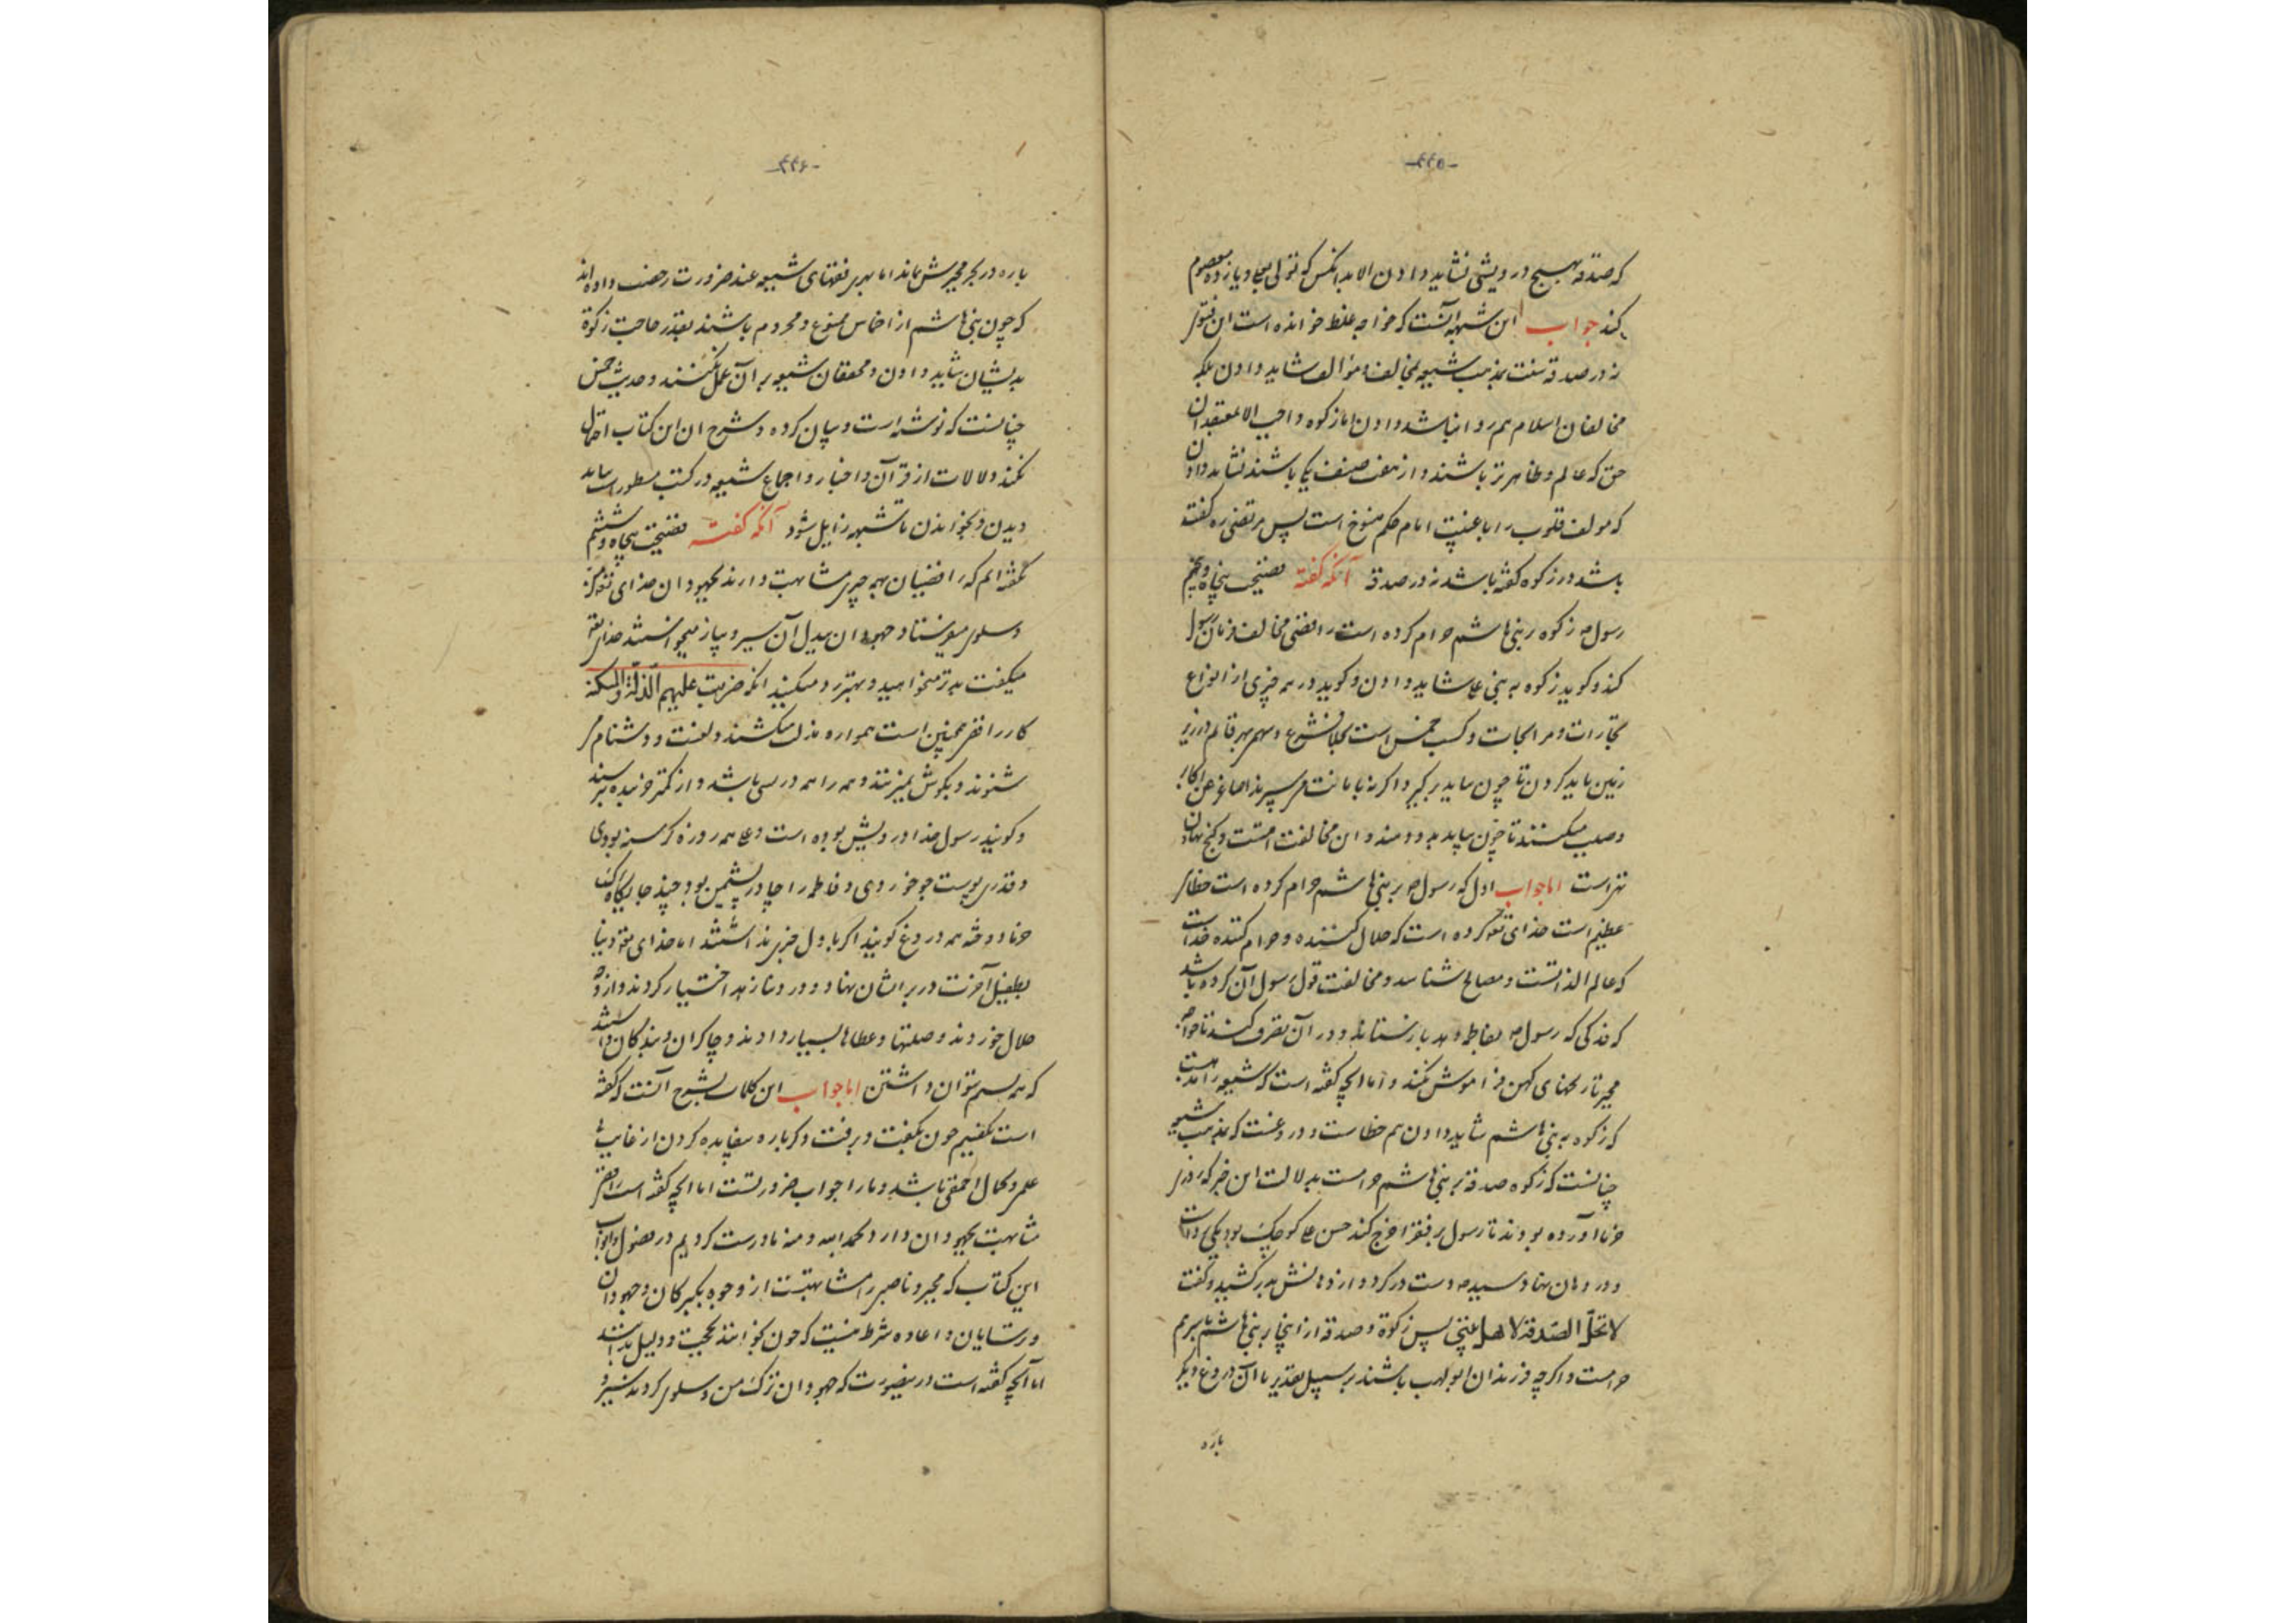 -۴۴۵-
که صدقه بهیچ درویشی نشاید دادن الا بدانکس که تولی بعلی و یازده معصوم
کند جواب این شبهه آنست که خواجه غلط خوانده است این فتوی
نه در صدقه سنت بمذهب شیعه بمخالف و مؤالف شاید دادن بلکه
مخالفان اسلام هم روا باشد دادن اما زکوه واجب الا بمعتقدان
حق که عالم و طاهرتر باشند و از هفت صنف یکی باشند نشاید دادن
که مولف قلوب را با غیبت امام حکم منسوخ است پس مرتضی ره گفته
باشد در زکوه گفته باشد نه در صدقه آنکه گفته فضیحت پنجاه و پنجم
رسول ص زکوه بر بنی هاشم حرام کرده است رافضی مخالف فرمان رسول
کند و گوید زکوه به بنی علی شاید دادن و گوید در هر چیزی از انواع
تجارات و مرابحات و کسب خمس است بخلاف شرع و سهم بهر قائم در زیر
زمین باید کردن تا چون بیاید برگیرد اگر نه بامانت می سپرند
و صلب میکنند تا چون بیاید بدو دهند و این مخالفت امتست و گنج نهادن
اما جواب اول که رسول ص بر بنی هاشم حرام کرده است خطای
عظیم است خدای تعالی کرده است که حلال کننده و حرام کننده خداست
که عالم الذاتست و مصالح شناسد و مخالفت قول رسول آن کرده باشد
که فدکی که رسول ص بفاطمه دهد باز ستاند و در آن تصرف کند تا خواجه
مجبر تاریخهای کهن فراموش نکند و اما آنچه گفته است که شیعه را مذهبست
که زکوه به بنی هاشم شاید دادن هم خطاست و دروغست که مذهب شیعه
چنانست که زکوه صدقه بر بنی هاشم حرامست بدلالت این خبر که روزی
خرما آورده بودند تا رسول بر فقرا خرج کند حسن علی کوچک بود یکی برداشت
و در دهان نهاد سید ص دست در کرد و از دهانش بدر کشید و گفت
لا تحلّ الصدقة لاهل بیتی پس زکوة و صدقه از اینجا بر بنی هاشم
حرامست و اگرچه فرزندان ابولهب باشند بر سبیل تقدیر با آن دروغ دیگر
باره
-۴۴۶-
باره در بحر مجبرش بماند اما بهری فقهای شیعه عند ضرورت رخصت داده اند
که چون بنی هاشم از اخماس ممنوع و محروم باشند بقدر حاجت زکوة
بدیشان شاید دادن و محققان شیعه بر آن عمل نکنند و حدیث خمس
چنانست که نوشته است و بیان کرده و شرح آن این کتاب احتمال
نکند دلالات از قرآن و اخبار و اجماع شیعه در کتب مسطور است بباید
دیدن و بخواندن تا شبهه زایل شود آنکه گفته فضیحت پنجاه و ششم
نگفته ایم که رافضیان بهمه چیز مشابهت دارند بجهودان خدای تعالی
و سلوی میفرستاد و جهودان بدیل آن سیر و پیاز میخواستند خدای تعالی
میگفت بدتر میخواهید و بهتر رد میکنید آنکه ضربت علیهم الذّلة والمسکنة
کار رافضی همچنین است همواره مذلت میکشند و لعنت و دشنام می
شنوند و بگوش
و گویند رسول خدا درویش بوده است و علی همه روزه گرسنه بودی
و قدری پوست جو خوردی و فاطمه را چادر پشمین بود چند جایگاه لیف
خرما دوخته همه دروغ گویند اگر باول چیزی نداشتند اما خدای تعالی دنیا
بطفیل آخرت در بر ایشان نهاد و در دنیا زهد اختیار کردند و از وجه
حلال خوردند و صلتها و عطاها بسیار دادند و چاکران و بندگان داشتند
که همه بسم توان داشتن اما جواب این کلمات بشرح آنست که گفته
است نگفتیم چون بگفت و برفت دگر باره بیفایده کردن از غایت بی
علمی و کمال احمقی باشد و ما را جواب ضرورتست اما آنچه گفته است رافضی
مشابهت بجهودان دارد بحمد الله و منه ما درست کردیم در فصول و ابواب
این کتاب که مجبر و ناصبی را مشابهتست از وجوه بگبرکان و جهودان
و ترسایان و اعاده شرط نیست که چون بخوانند بحجت و دلیل بدانند
اما آنچه گفته است درینصورت که جهودان ترک من و سلوی کردند بسیر و